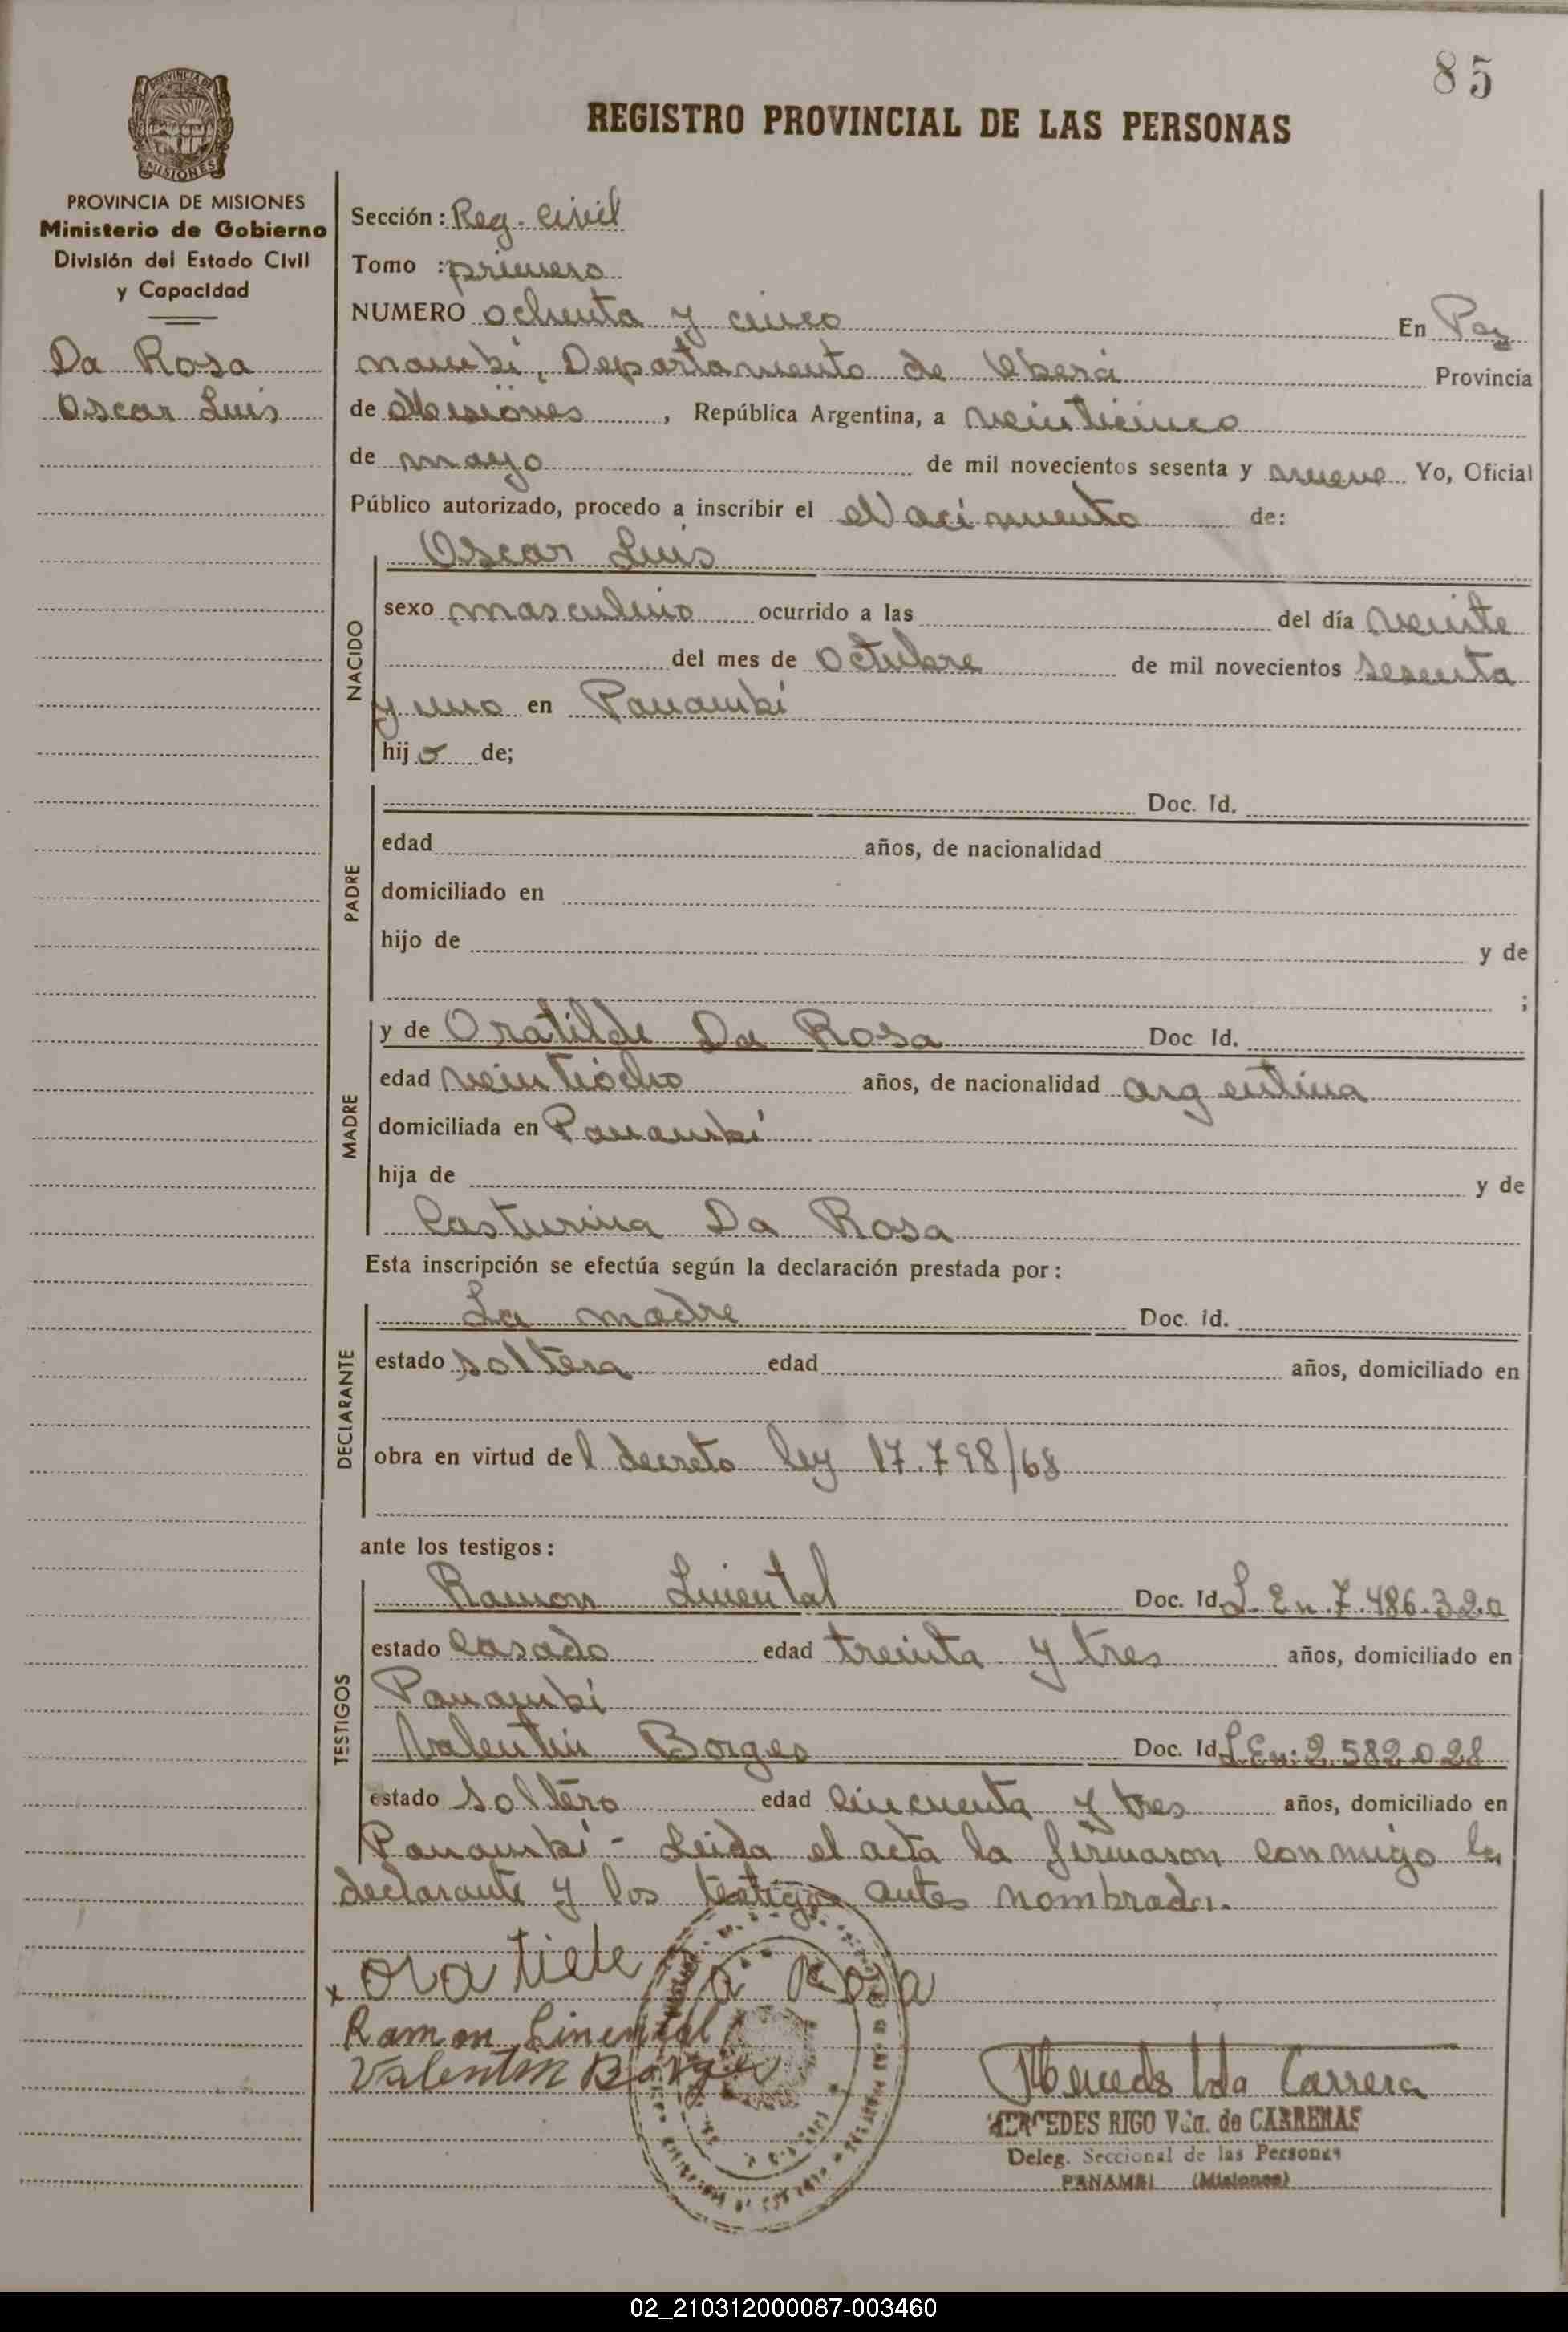 85
PROVINCIA DE
MISIONES
REGISTRO PROVINCIAL DE LAS PERSONAS
PROVINCIA DE MISIONES
Ministerio de Gobierno
División del Estado Civil
y Capacidad
Da Rosa
Oscar Luis
Sección: Reg. Civil
Tomo : primero
NUMERO ochenta y cinco En Pa
nambí, Departamento de Oberá Provincia
de Misiones, República Argentina, a veinticinco
de mayo de mil novecientos sesenta y nueve Yo, Oficial
Público autorizado, procedo a inscribir el Nacimiento de:
NACIDO
Oscar Luis
sexo masculino ocurrido a las del día veinte
del mes de octubre de mil novecientos sesenta
y uno en Panambí
hij o de;
PADRE
Doc. Id.
edad años, de nacionalidad
domiciliado en
hijo de y de
;
MADRE
y de Oratilde Da Rosa Doc Id.
edad veintiocho años, de nacionalidad argentina
domiciliada en Panambí
hija de y de
Casturina Da Rosa
Esta inscripción se efectúa según la declaración prestada por:
DECLARANTE
La madre Doc. id.
estado soltera edad años, domiciliado en
obra en virtud del decreto ley 17.798/68
ante los testigos:
TESTIGOS
Ramon Linental Doc. Id. L. En. 7.486.320
estado casado edad treinta y tres años, domiciliado en
Panambí
Valentin Borges Doc. Id L.En: 2.582.028
estado soltero edad cincuenta y tres años, domiciliado en
Panambí - Leida el acta la firmason conmigo la
declarante y los testigos antes nombrada.
x ora tiele Da Rosa
Ramon Linental
Valentin Borges
Mercedes Vda Carrera
MERCEDES RIGO Vda. de CARRERAS
Deleg. Seccional de las Personas
PANAMBI (Misiones)
02_210312000087-003460